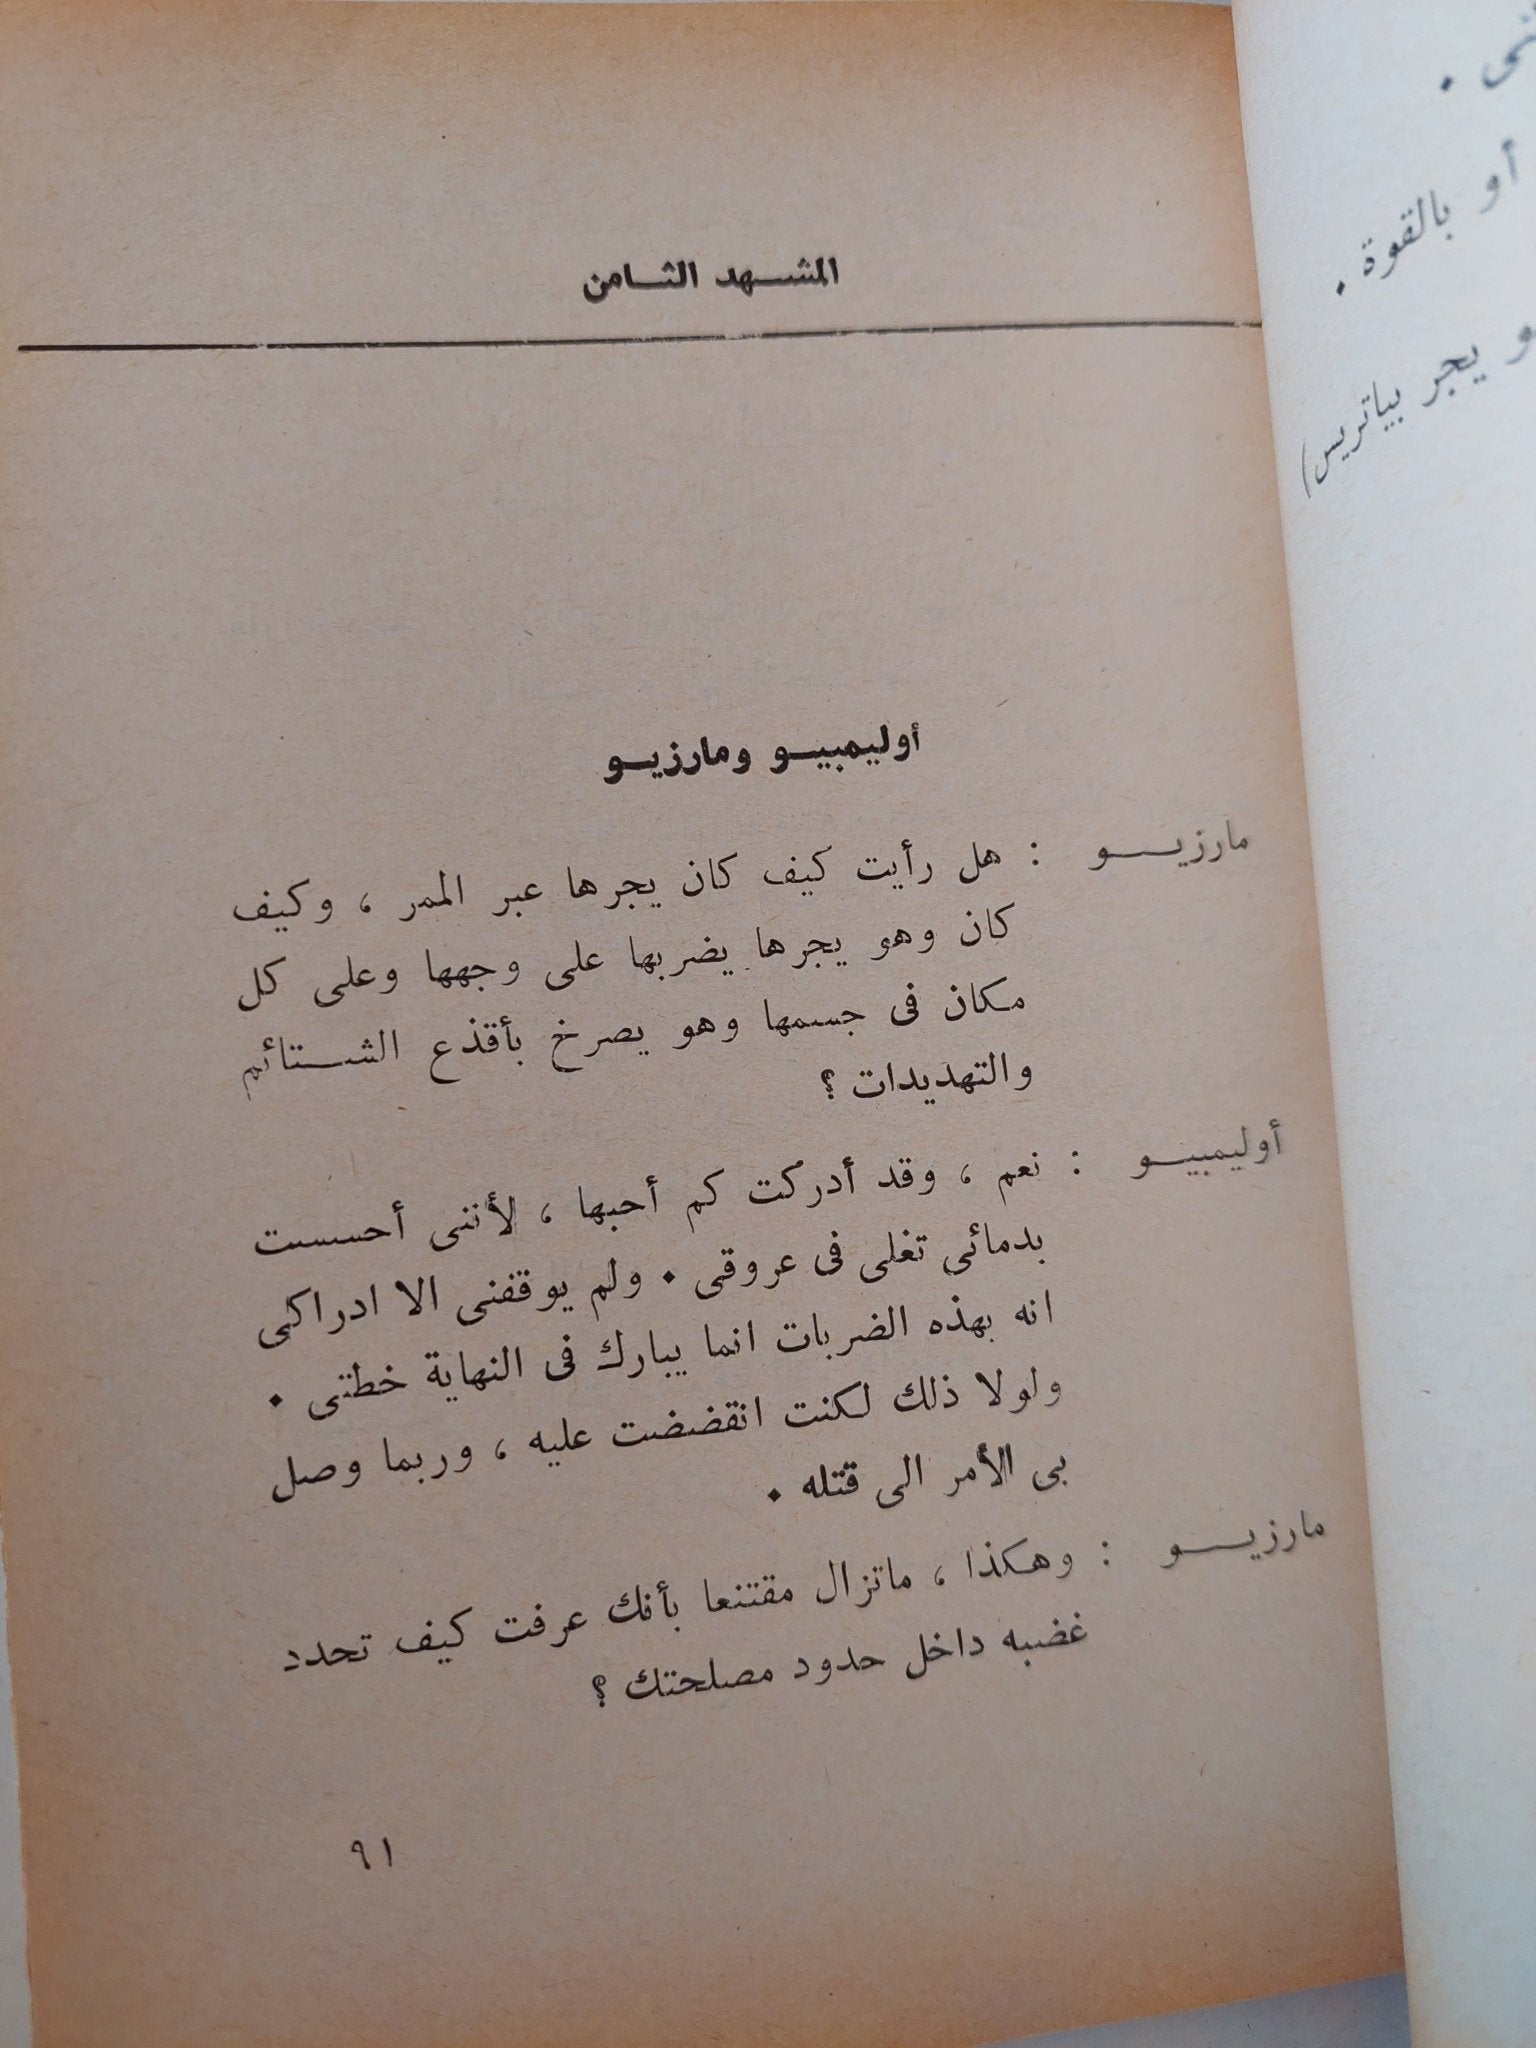 المشهد الثامن
أوليمبيو ومارزيو
مارزيو : هل رأيت كيف كان يجرها عبر الممر ، وكيف
كان وهو يجرها يضربها على وجهها وعلى كل
مكان فى جسمها وهو يصرخ بأقذع الشتائم
والتهديدات ؟
أوليمبيو : نعم ، وقد أدركت كم أحبها ، لأننى أحسست
بدمائى تغلى فى عروقى . ولم يوقفنى الا ادراكى
انه بهذه الضربات انما يبارك فى النهاية خطتى .
ولولا ذلك لكنت انقضضت عليه ، وربما وصل
بى الأمر الى قتله .
مارزيو : وهكذا ، ماتزال مقتنعا بأنك عرفت كيف تحدد
غضبه داخل حدود مصلحتك ؟
٩١
أو بالقوة .
يجر بياتريس)